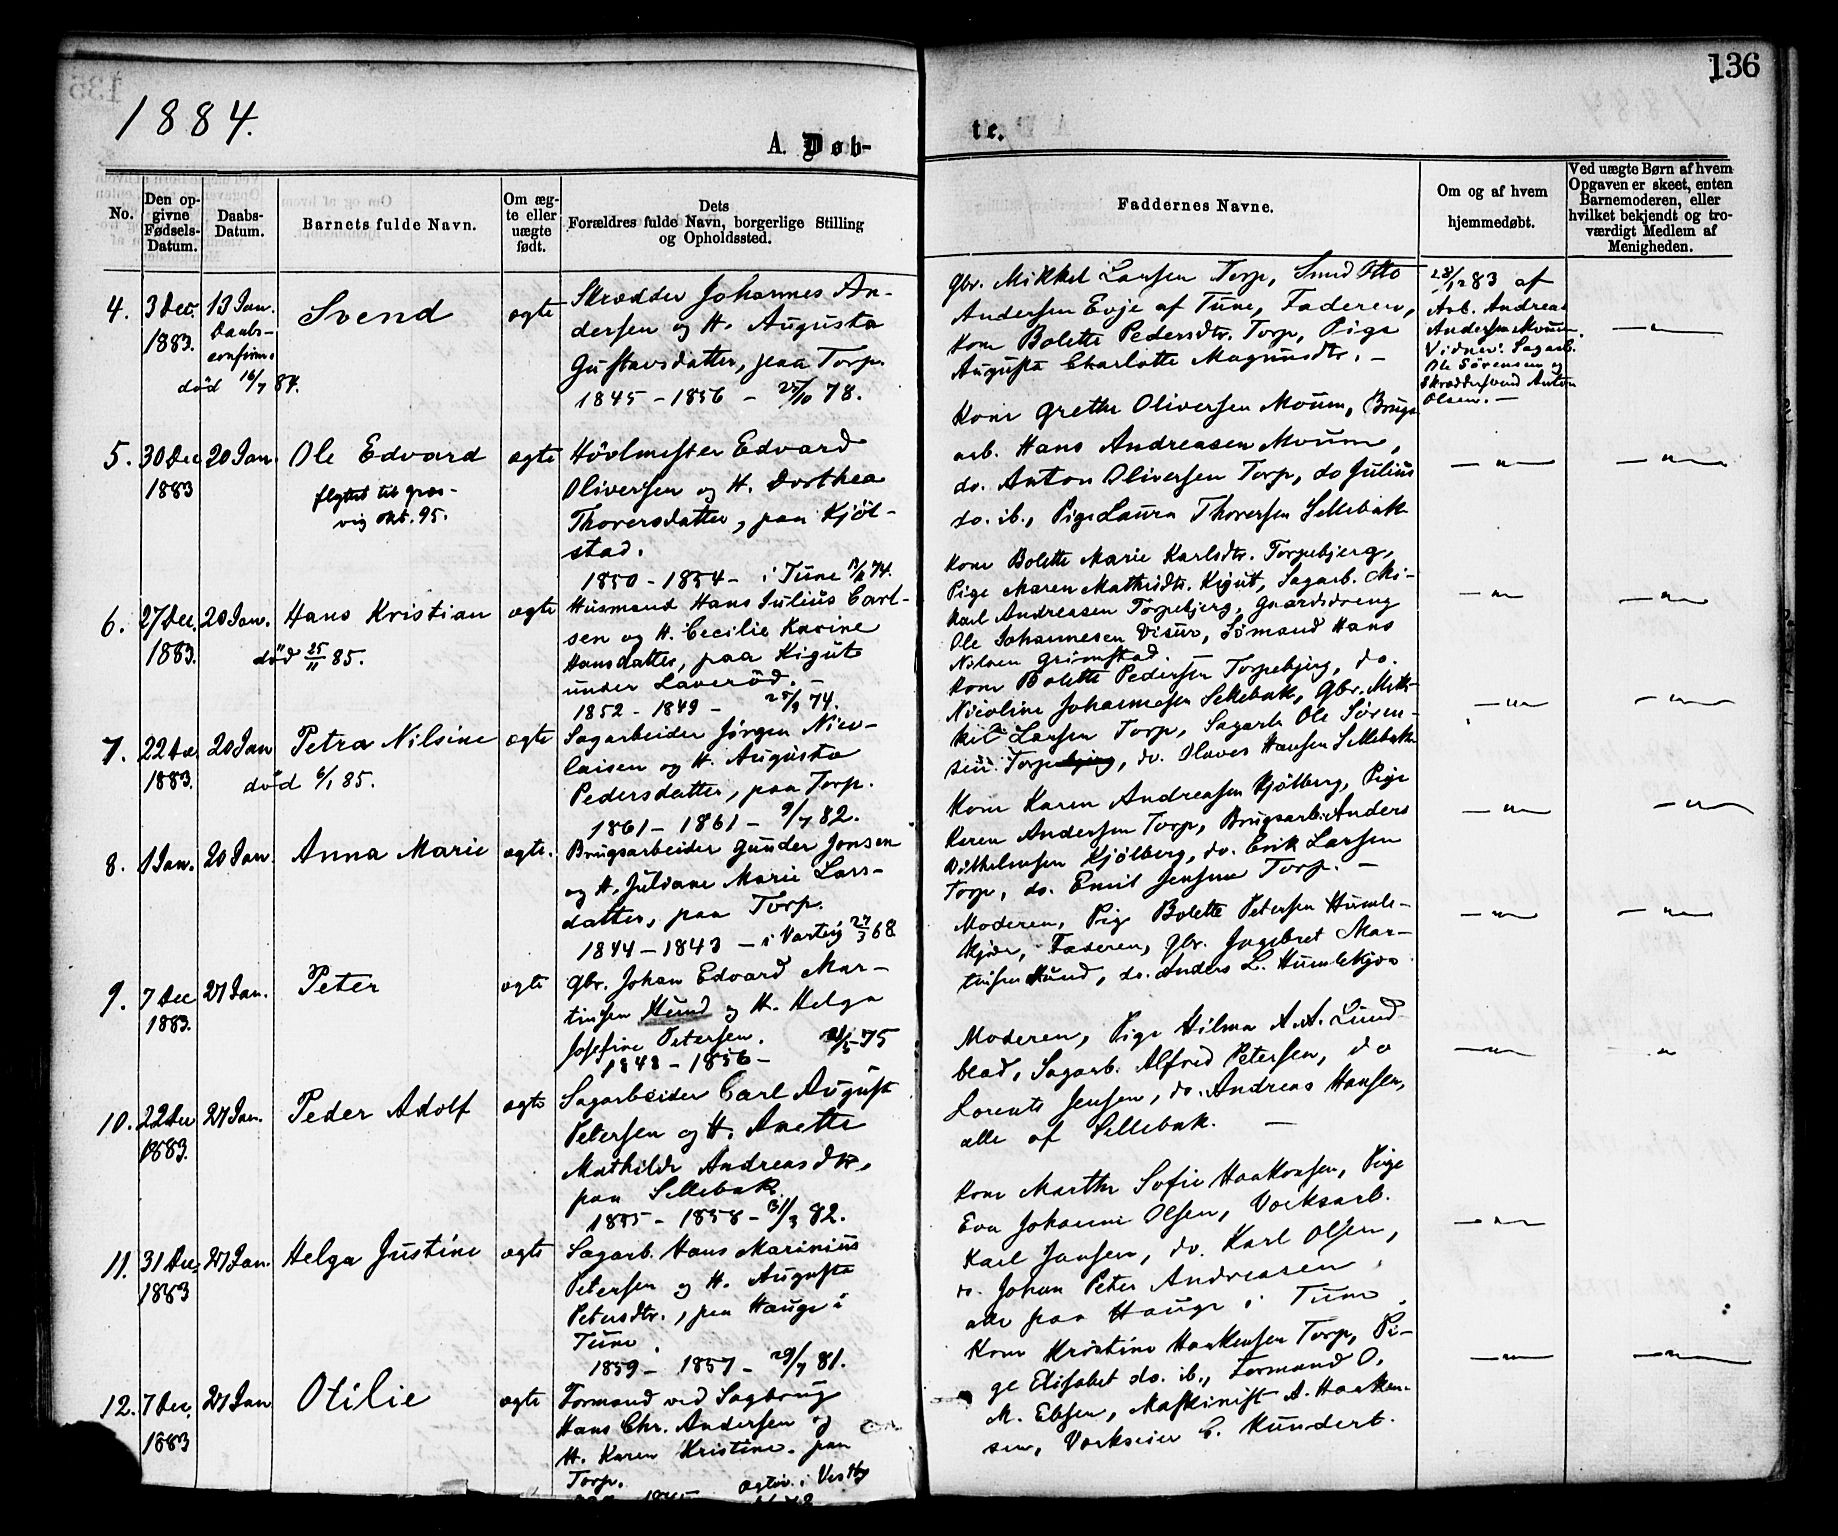 136
1884.
A. Døb-
te.
No.
Den op-
givne
Fødsels-
Datum.
Daabs-
Datum.
Barnets fulde Navn.
Om æg-
te eller
uægte
født.
Dets
Forældres fulde Navn, borgerlige Stilling
og Opholdssted.
Faddernes Navne.
Om og af hvem
hjemmedøbt.
Ved uægte Børn af hvem
Opgaven er skeet, enten
Barnemoderen, eller
hvilket bekjendt og tro-
værdigt Medlem af
Menigheden.
4.
3 Dec.
1883.
13 Jan.
Daabs-
confirm.
Svend
død 16/7 84.
ægte
Skrædder Johannes An-
dersen og H. Augusta
Gustavsdatter, paa Torp.
1845 - 1856 - 25/10 78.
Gbr. Mikkel Larsen Torp, Smed Otto
Andersen Evje af Tune, Faderen,
Kone Bolette Pedersdtr. Torp, Pige
Augusta Charlotte Magnusdtr. -
28/12 83 af
Arb. Andreas
Andersen Moum.
Vidner: Sagarb.
Ole Sørensen og
Skræddersvend Anton
Olsen. -
— " —
5.
30 Dec
1883
20 Jan.
Ole Edvard
flyttet til Græs-
vig Okt. 95.
ægte
Høvlmester Edvard
Oliversen og H. Dorthea
Thoversdatter, paa Kjøl-
stad.
1850 - 1854 - i Tune 74.
Kone Grethe Oliversen Moum, Brugs
arb. Hans Andreasen Moum,
do. Anton Oliversen Torp, do Julius
do. ib., Pige Laura Thoversen Sellebak
— " —
— " —
6.
27 Dec.
1883.
20 Jan.
Hans Kristian
død 25/11 85.
ægte
Husmand Hans Julius Carl-
sen og H. Cecilie Karine
Hansdatter, paa Kigut
under Laverød. -
1852 - 1849 - 25/9 74.
Kone Bolette Marie Karlsdtr. Torpebjerg,
Pige Maren Mathisdtr. Kigut, Sagarb. Mi-
kael Andreasen Torpebjerg, Gaardsdreng
Ole Johannesen Visur, Sømand Hans
Nilsen Grimstad.
— " —
— " —
7.
22 Dec
1883.
20 Jan
Petra Nilsine
død 6/1 85.
ægte
Sagarbeider Jørgen Nico-
laisen og H. Augusta
Pedersdatter, paa Torp.
1861 - 1861 - 9/7 82.
Kone Bolette Pedersen Torpebjerg, do.
Nicoline Johannesen Sellebak, Gbr. Mik-
kel Larsen Torp, Sagarb. Ole Søren-
sen Torpebjerg, do. Olaves Hansen Sellebak
— " —
— " —
8.
1 Jan.
20 Jan.
Anna Marie
ægte.
Brugsarbeider Gunder Jonsen
og H. Juliane Marie Lars-
datter, paa Torp.
1844 - 1843 - i Varteig 27/3 68
Kone Karen Andreasen Kjølberg, Pige
Karen Andersen Torp, Brugsarb. Anders
Vilhelmsen Kjølberg, do. Erik Larsen
Torp, do. Emil Jensen Torp. -
— " —
— " —
9.
7 Dec
1883.
27 Jan.
Peter
ægte
Gbr. Johan Edvard Mar-
tinsen Hund og H. Helga
Josefine Petersen.
1848 - 1856 - 75
Moderen, Pige Bolette Petersen Humle-
kjær, Faderen, Gbr. Ingebret Mar-
tinsen Hund, do. Anders L. Humlekjær
— " —
— " —
10.
22 Dec
1883.
27 Jan.
Peder Adolf
ægte
Sagarbeider Carl August
Petersen og H. Anette
Mathilde Andreasdtr.
paa Sellebak.
1855 - 1858 - 31/3 82.
Moderen, Pige Hilma A. A. Lund-
blad, Sagarb. Alfred Petersen, do
Lorents Jensen, do. Andreas Hansen,
alle af Sellebak. —
— " —
"
11.
31 Dec.
1883
27 Jan.
Helga Justine
ægte
Sagarb. Hans Marinius
Petersen og H. Augusta
Petersdtr., paa Hauge i
Tune.
1859 - 1857 - 29/7 81.
Kone Marthe Sofie Haakonsen, Pige
Eva Johanne Olsen, Værksarb.
Karl Jansen, do. Karl Olsen,
do. Johan Peter Andreasen,
alle paa Hauge i Tune.
— " —
12.
7 Dec.
1883
27 Jan
Otilie
ægte
Formand ved Sagbrug
Hans Chr. Andersen og
H. Karen Kristine. paa
Torp.
Kone Kristine Haakensen Torp, Pi-
ge Elisabet do. ib., Formand O.
M. Ebsen, Maskinist A. Haaken-
sen, Værkseier C. Kundert.
— " —
— " —